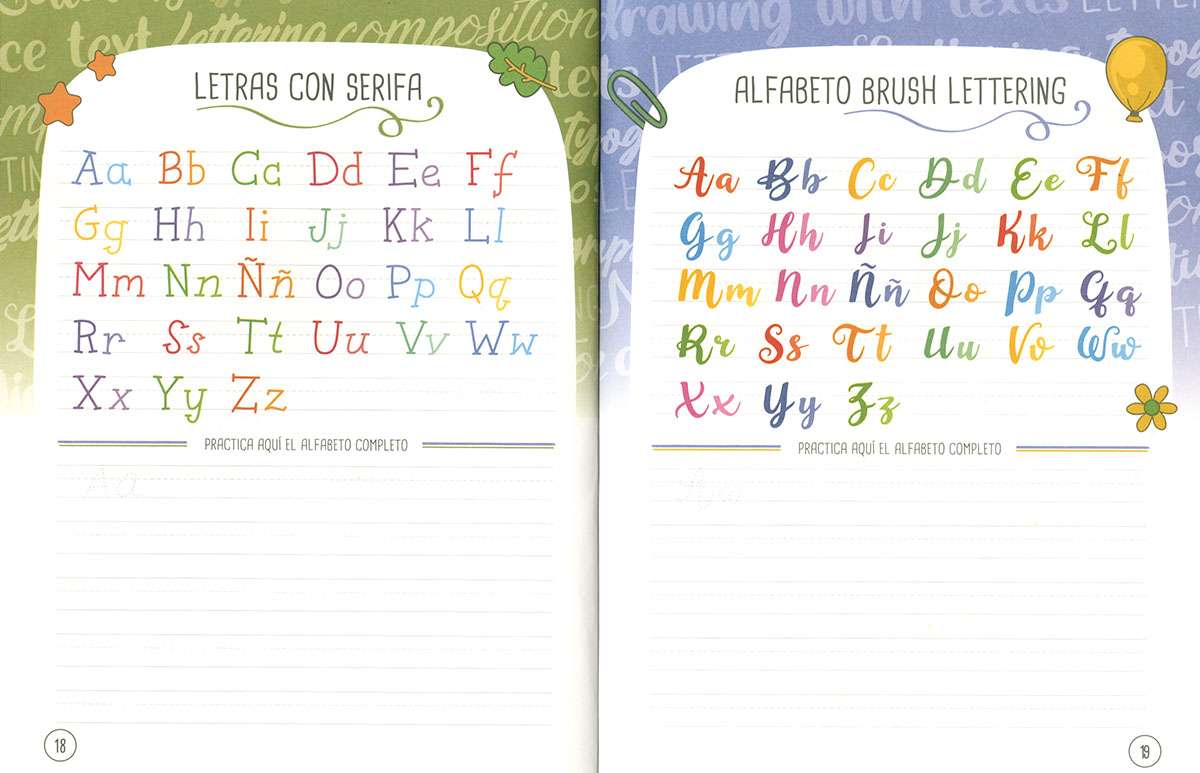 LETRAS CON SERIFA
Aa Bb Cc Dd Ee Ff
Gg Hh Ii Jj Kk Ll
Mm Nn Ññ Oo Pp Qq
Rr Ss Tt Uu Vv Ww
Xx Yy Zz
PRACTICA AQUÍ EL ALFABETO COMPLETO
Aa
18
drawing with texts
ALFABETO BRUSH LETTERING
Aa Bb Cc Dd Ee Ff
Gg Hh Ii Jj Kk Ll
Mm Nn Ññ Oo Pp Qq
Rr Ss Tt Uu Vv Ww
Xx Yy Zz
PRACTICA AQUÍ EL ALFABETO COMPLETO
Aa
19